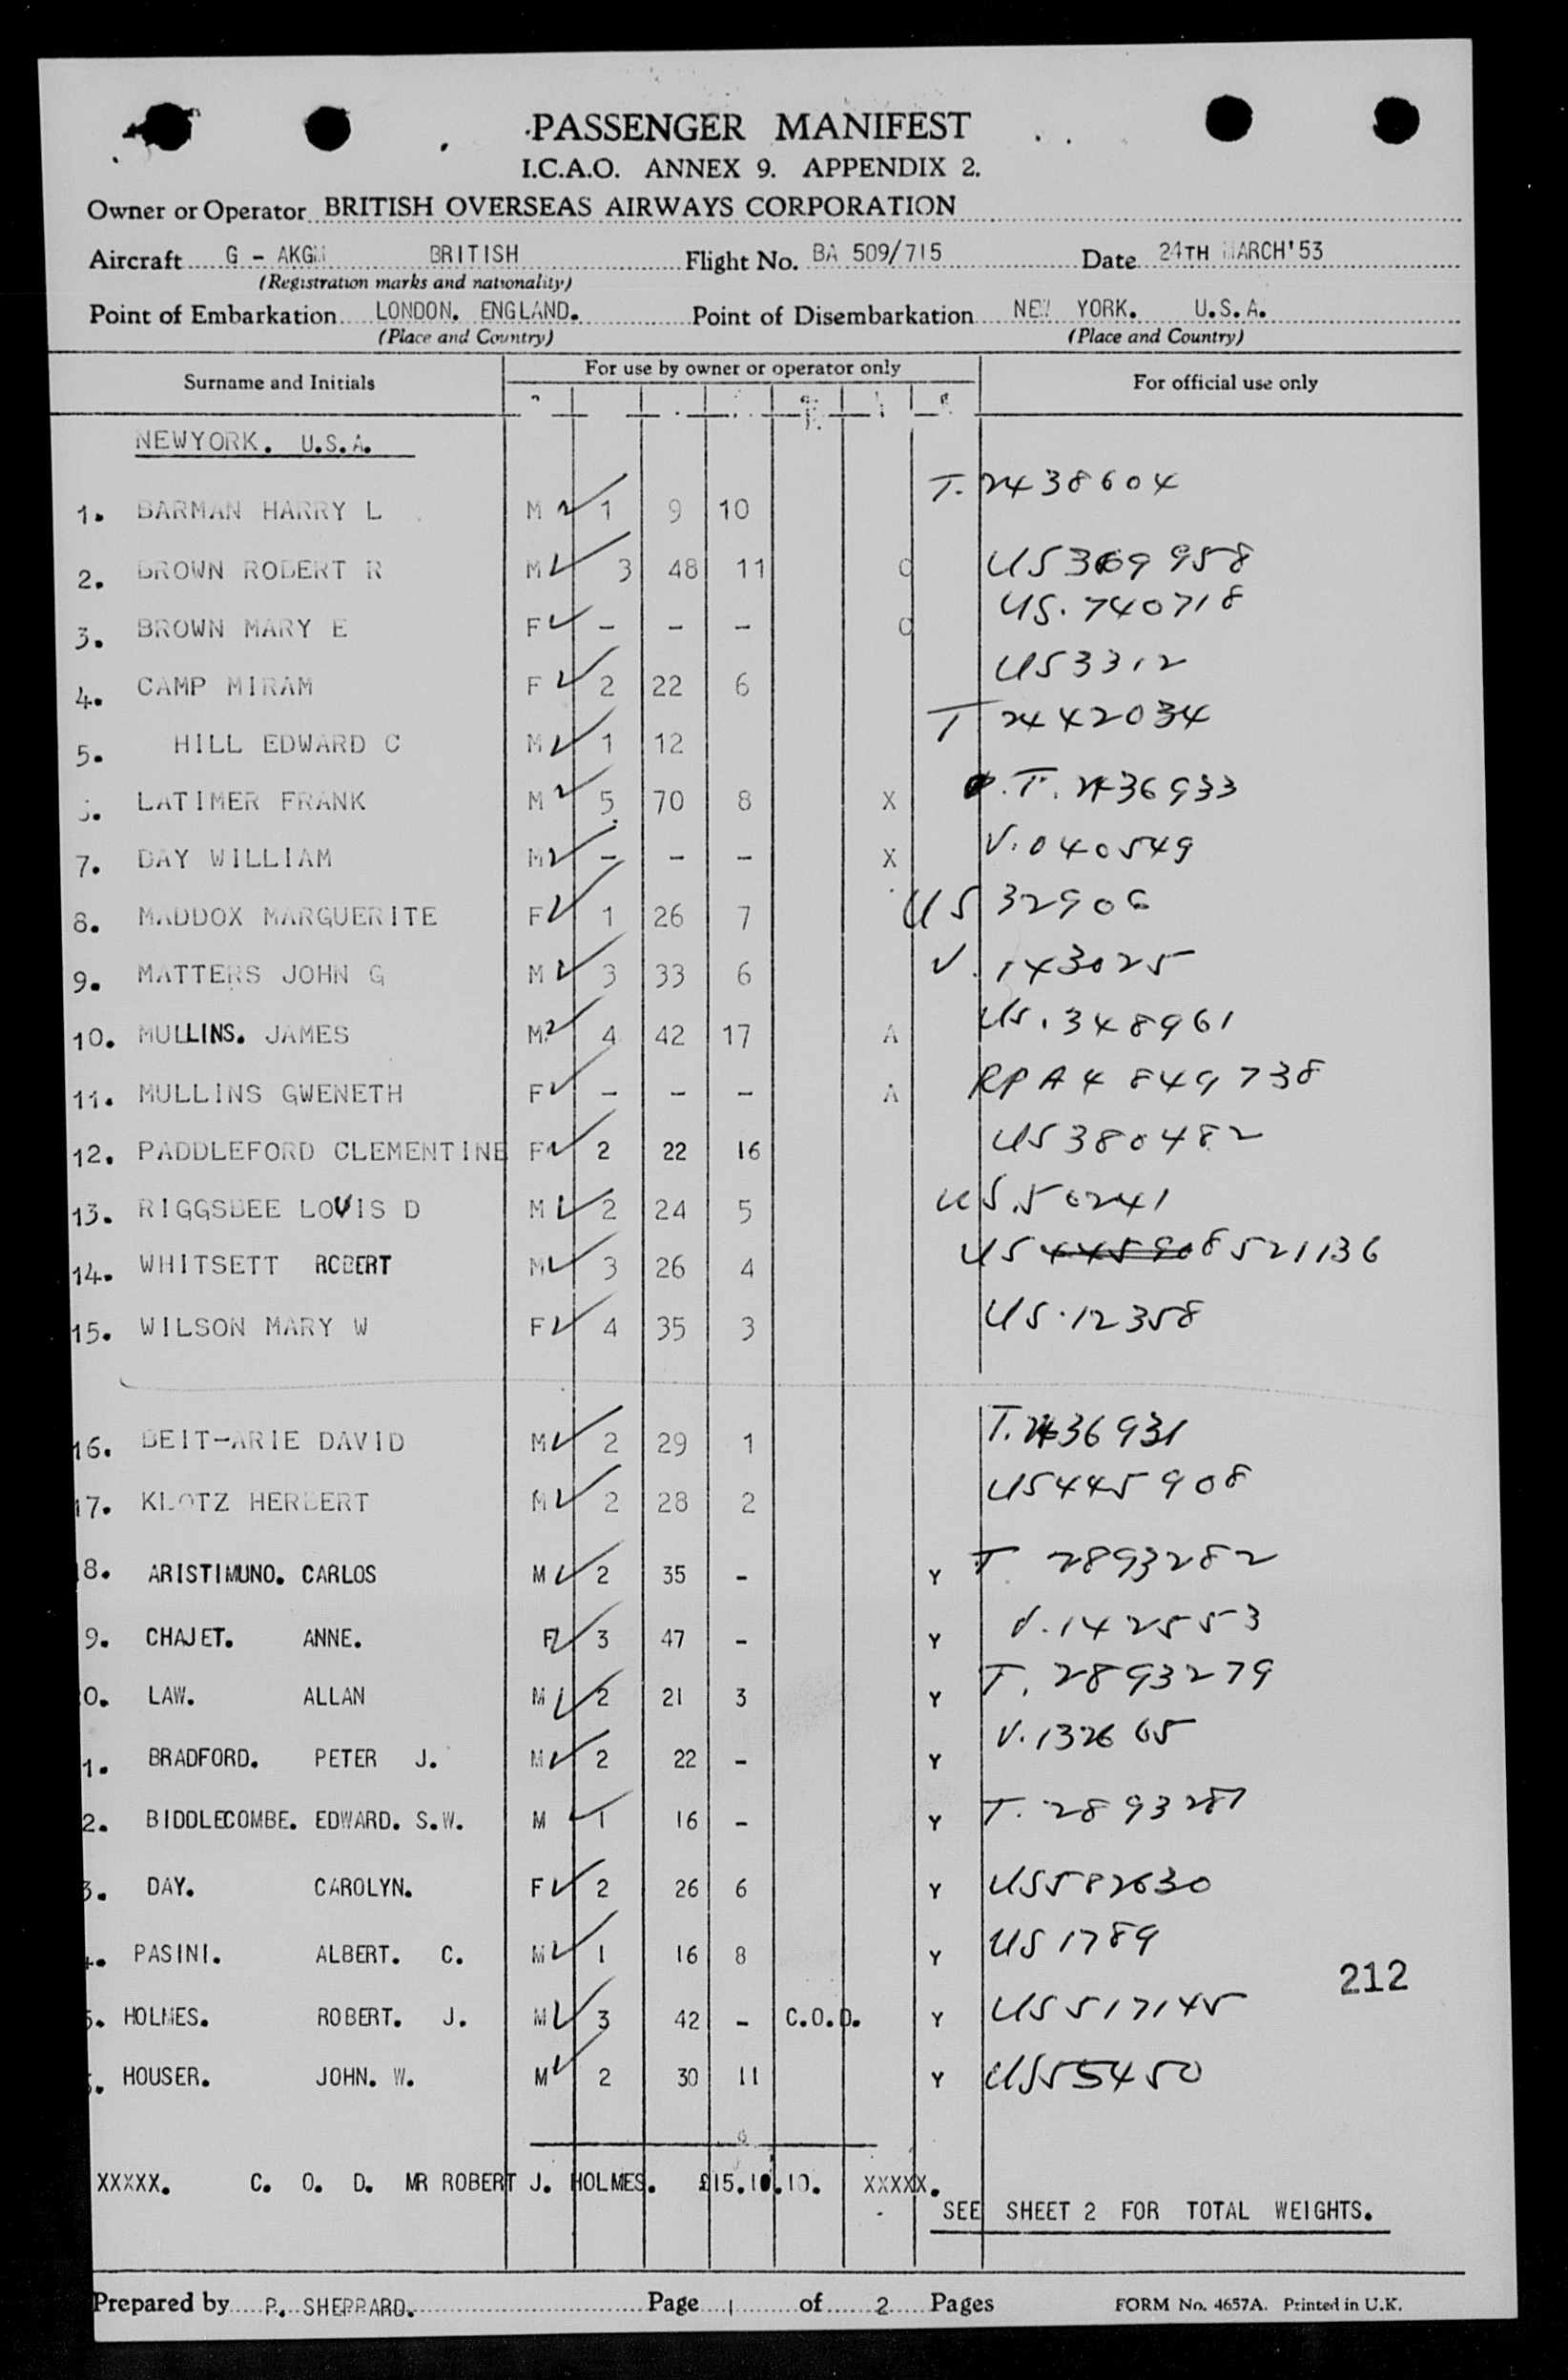 PASSENGER MANIFEST
I.C.A.O. ANNEX 9. APPENDIX 2.
Owner or Operator BRITISH OVERSEAS AIRWAYS CORPORATION
Aircraft G - AKGM BRITISH Flight No. BA 509/715 Date 24TH MARCH'53
(Registration marks and nationality)
Point of Embarkation LONDON. ENGLAND. Point of Disembarkation NEW YORK. U.S.A.
(Place and Country) (Place and Country)
Surname and Initials For use by owner or operator only For official use only
NEWYORK. U.S.A.
1. BARMAN HARRY L M 1 9 10 T. 2438604
2. BROWN ROBERT R M 3 48 11 C US369958
3. BROWN MARY E F - - - C US. 740718
4. CAMP MIRAM F 2 22 6 US3312
5. HILL EDWARD C M 1 12 T 2442034
LATIMER FRANK M 5 70 8 X T. 2436933
7. DAY WILLIAM M - - - X V. 040549
8. MADDOX MARGUERITE F 1 26 7 US 32906
9. MATTERS JOHN G M 3 33 6 V. 143025
10. MULLINS. JAMES M 4 42 17 A US. 348961
11. MULLINS GWENETH F - - - A RPA4 849738
12. PADDLEFORD CLEMENTINE F 2 22 16 US380482
13. RIGGSBEE LOUIS D M 2 24 5 US.50241
14. WHITSETT ROBERT M 3 26 4 US 445908 521136
15. WILSON MARY W F 4 35 3 US.12358
16. BEIT-ARIE DAVID M 2 29 1 T. 2436931
17. KLOTZ HERBERT M 2 28 2 US445908
8. ARISTIMUNO. CARLOS M 2 35 - Y T 2893282
9. CHAJET. ANNE. F 3 47 - Y V. 142553
0. LAW. ALLAN M 2 21 3 Y T. 2893279
1. BRADFORD. PETER J. M 2 22 - Y V. 132665
2. BIDDLECOMBE. EDWARD. S.W. M 1 16 - Y T. 2893281
3. DAY. CAROLYN. F 2 26 6 Y US582630
4. PASINI. ALBERT. C. M 1 16 8 Y US 1789
212
5. HOLMES. ROBERT. J. M 3 42 - C.O.D. Y US517145
HOUSER. JOHN. W. M 2 30 11 Y US55450
XXXXX. C. O. D. MR ROBERT J. HOLMES. £15.10.10. XXXXX.
SEE SHEET 2 FOR TOTAL WEIGHTS.
Prepared by P. SHEPPARD. Page 1 of 2 Pages FORM No. 4657A. Printed in U.K.